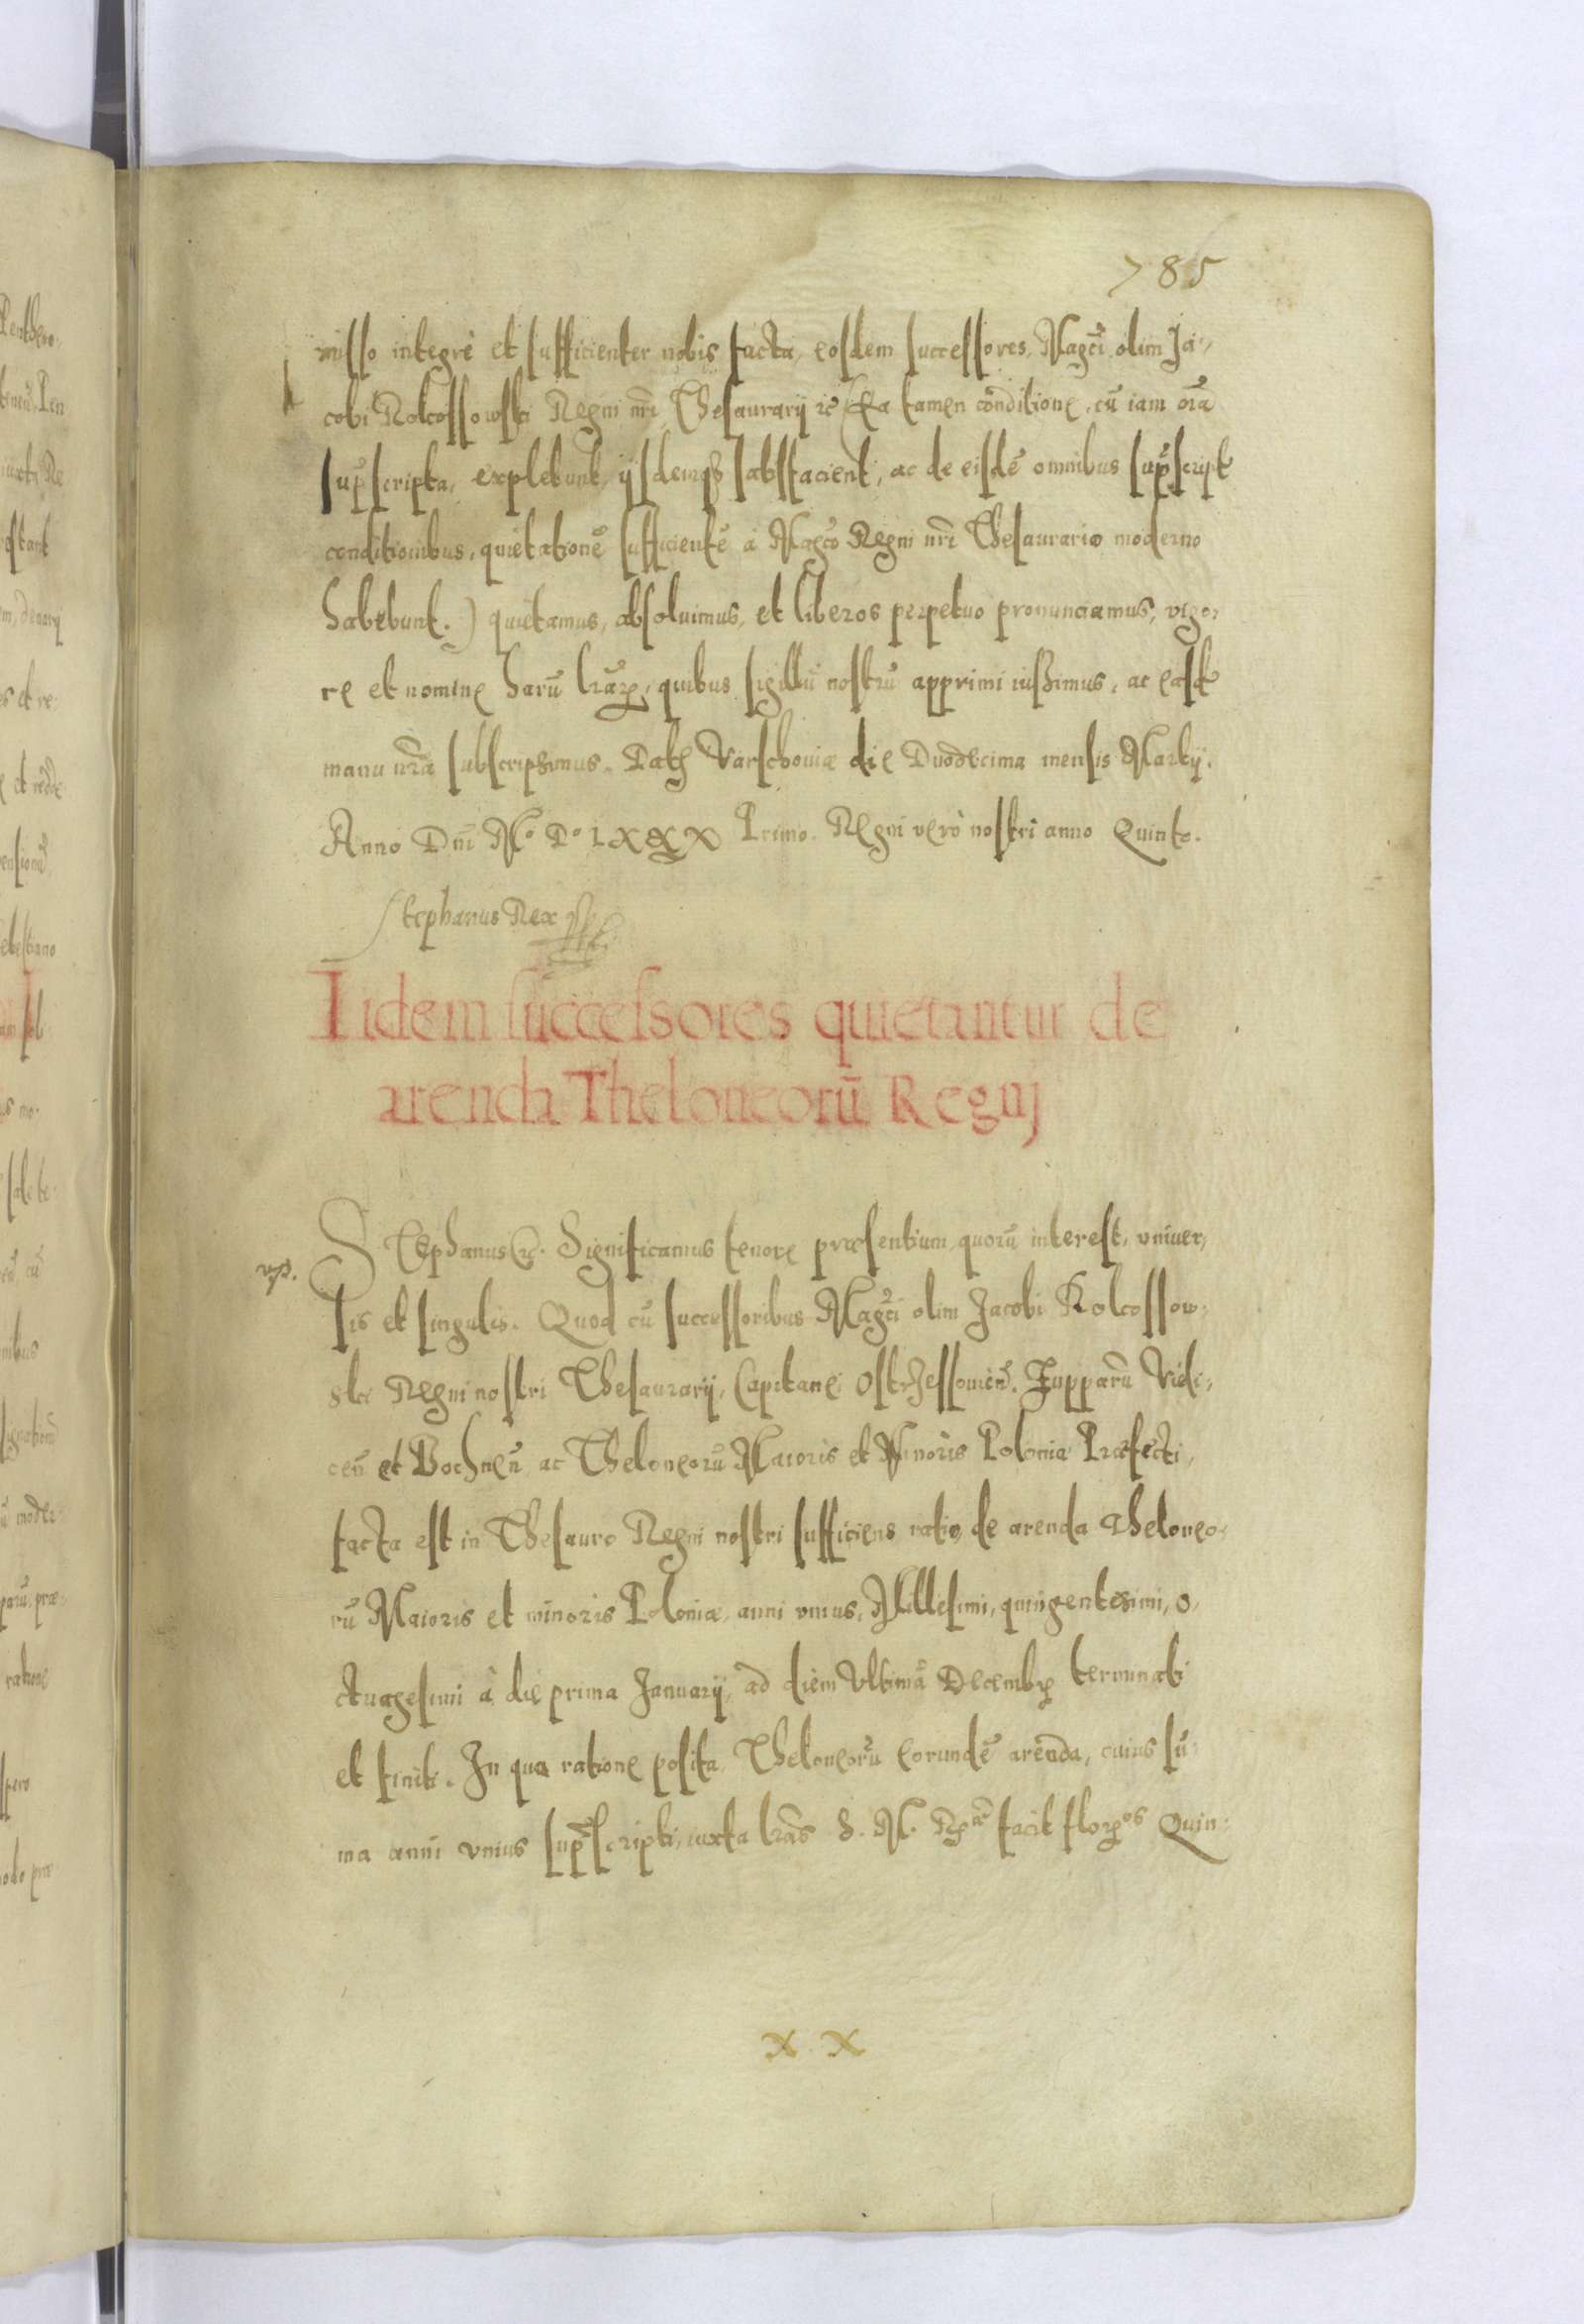 785
misso integrè et sufficienter nobis facta, eosdem successores, Magcī olim Ja-
cobi Rokossowski Regni nrī Thesaurarij rc̄ (Ea tamen conditione, cū iam oīa
supscripta, explebunt, ijsdemq3 sabsfacient, ac de eisdē omnibus supscript
conditionibus, quietationē sufficientē a Magco Regni nrī Thesaurario moderno
habebunt.) quietamus, absoluimus, et liberos perpetuo pronunciamus, vigo-
re et nomine harū lrārz, quibus sigillū nostrū apprimi iussimus, ac easd
manu nrā subscripsimus. Dat Varschouiæ die Duodecima mensis Martij.
Anno Dnī Mo Do LXXX Primo. Regni verò nostri anno Quinto.
Stephanus Rex
Iidem successores quietantur de
arenda Theloneorū Regnj
STEphanus rc̄. Significamus tenore præsentium, quorū interest, vniuer-
sis et singulis. Quod cū successoribus Magcī olim Jacobi Rokossow-
ski Regni nostri Thesaurarij, Capitanei Ostrzessouien̄. Zupparū Vieli-
cen̄ et Bochnen̄ ac Theloneorū Maioris et Minoris Poloniæ Præfecti,
facta est in Thesauro Regni nostri sufficiens ratio, de arenda Theloneo-
rū Maioris et minoris Poloniæ, anni vnius, Millesimi, quingentesimi, o-
ctuagesimi à die prima Januarij, ad diem Vltimā Decembr terminati
et finiti. In qua ratione posita Theloneorū eorundē arenda, cuius sū-
ma anni vnius supscripti, iuxta lrās S. M. Rę facit flor pos Quin-
X X